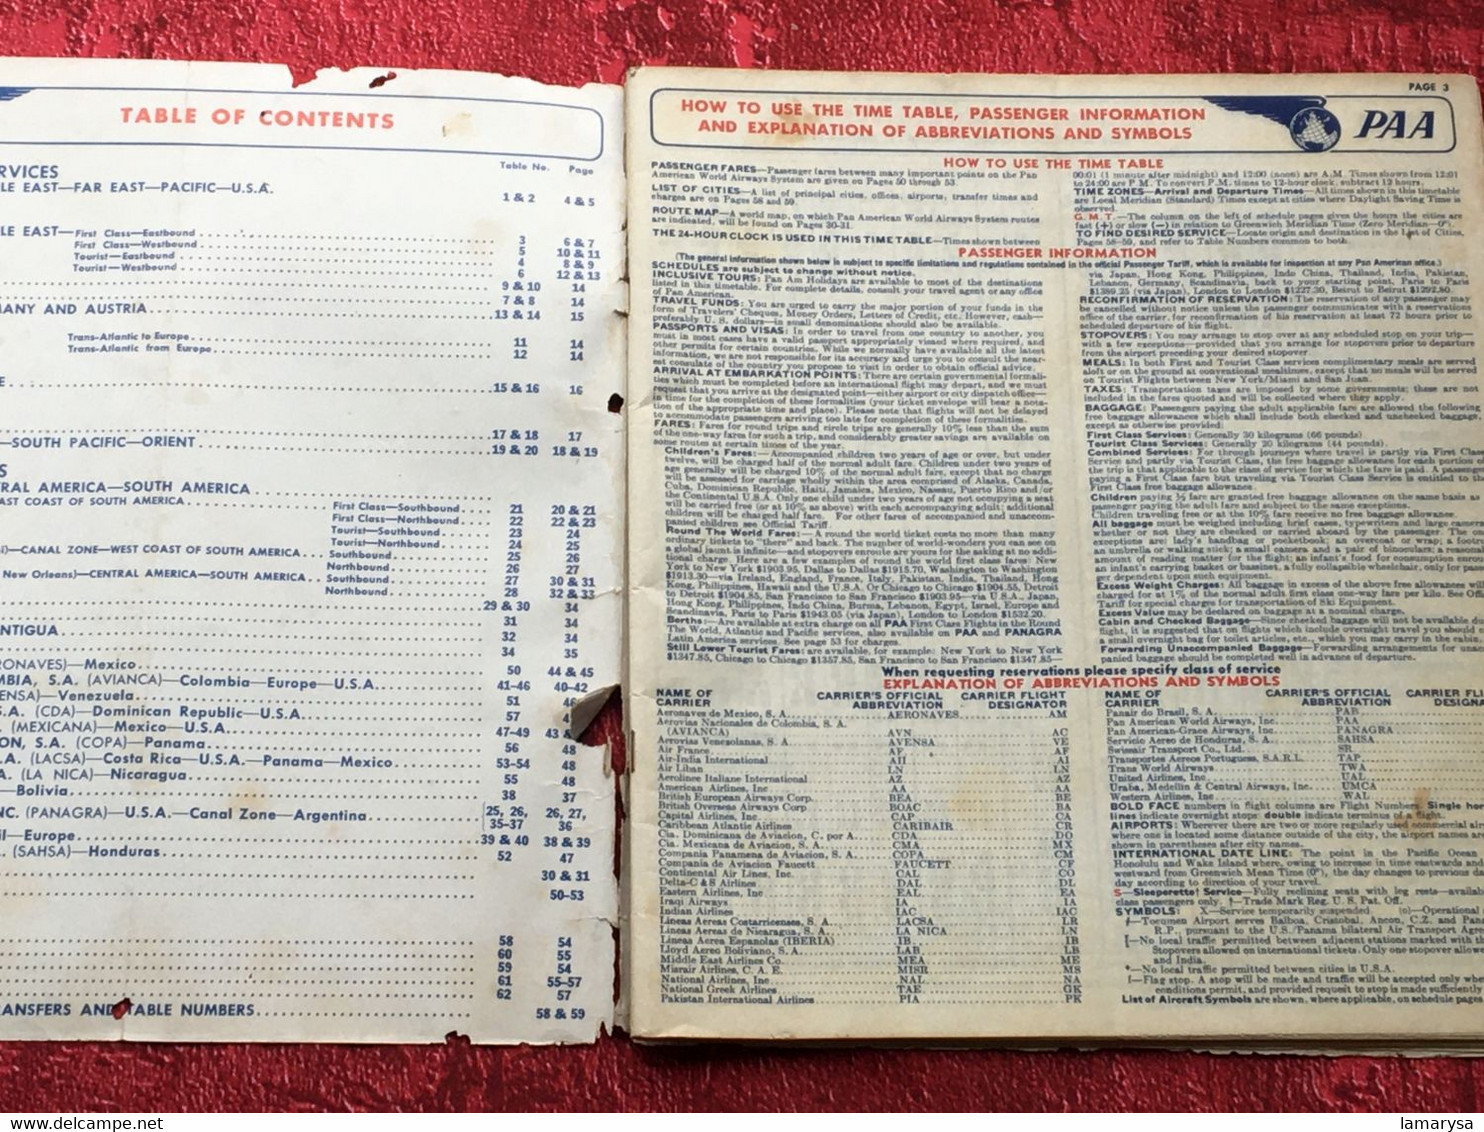 TABLE OF CONTENTS
RVICES
Table No. Page
LE EAST—FAR EAST—PACIFIC—U.S.A.
1 & 2 4 & 5
LE EAST—First Class—Eastbound 3 6 & 7
First Class—Westbound 5 10 & 11
Tourist—Eastbound 4 8 & 9
Tourist—Westbound 6 12 & 13
9 & 10 14
7 & 8 14
ANY AND AUSTRIA 13 & 14 15
Trans-Atlantic to Europe 11 14
Trans-Atlantic from Europe 12 14
15 & 16 16
17 & 18 17
—SOUTH PACIFIC—ORIENT 19 & 20 18 & 19
S
RAL AMERICA—SOUTH AMERICA
AST COAST OF SOUTH AMERICA First Class—Southbound 21 20 & 21
First Class—Northbound 22 22 & 23
Tourist—Southbound 23 24
Tourist—Northbound 24 25
)—CANAL ZONE—WEST COAST OF SOUTH AMERICA Southbound 25 26
Northbound 26 27
New Orleans)—CENTRAL AMERICA—SOUTH AMERICA Southbound 27 30 & 31
Northbound 28 32 & 33
29 & 30 34
31 34
NTIGUA 32 34
34 35
RONAVES)—Mexico 50 44 & 45
MBIA, S.A. (AVIANCA)—Colombia—Europe—U.S.A. 41-46 40-42
ENSA)—Venezuela 51 46
S.A. (CDA)—Dominican Republic—U.S.A. 57
(MEXICANA)—Mexico—U.S.A. 47-49 43 &
ON, S.A. (COPA)—Panama 56 48
.A. (LACSA)—Costa Rica—U.S.A.—Panama—Mexico 53-54 48
A. (LA NICA)—Nicaragua 55 48
—Bolivia 38 37
NC. (PANAGRA)—U.S.A.—Canal Zone—Argentina 25, 26, 35-37 26, 27, 36
il—Europe 39 & 40 38 & 39
. (SAHSA)—Honduras 52 47
30 & 31
50-53
58 54
60 55
59 54
61 55-57
62 57
ANSFERS AND TABLE NUMBERS 58 & 59
PAGE 3
HOW TO USE THE TIME TABLE, PASSENGER INFORMATION
AND EXPLANATION OF ABBREVIATIONS AND SYMBOLS
PAA
HOW TO USE THE TIME TABLE
PASSENGER FARES—Passenger fares between many important points on the Pan
American World Airways System are given on Pages 50 through 53.
LIST OF CITIES—A list of principal cities, offices, airports, transfer times and
charges are on Pages 58 and 59.
ROUTE MAP—A world map, on which Pan American World Airways System routes
are indicated, will be found on Pages 30-31.
THE 24-HOUR CLOCK IS USED IN THIS TIME TABLE—Times shown between
00:01 (1 minute after midnight) and 12:00 (noon) are A.M. Times shown from 12:01
to 24:00 are P.M. To convert P.M. times to 12-hour clock, subtract 12 hours.
TIME ZONES—Arrival and Departure Times—All times shown in this timetable
are Local Meridian (Standard) Times except at cities where Daylight Saving Time is
observed.
G.M.T.—The column on the left of schedule pages gives the hours the cities are
fast (+) or slow (—) in relation to Greenwich Meridian Time (Zero Meridian—0°).
TO FIND DESIRED SERVICE—Locate origin and destination in the List of Cities,
Pages 58-59, and refer to Table Numbers common to both.
PASSENGER INFORMATION
(The general information shown below is subject to specific limitations and regulations contained in the official Passenger Tariff, which is available for inspection at any Pan American office.)
SCHEDULES are subject to change without notice.
INCLUSIVE TOURS: Pan Am Holidays are available to most of the destinations
listed in this timetable. For complete details, consult your travel agent or any office
of Pan American.
TRAVEL FUNDS: You are urged to carry the major portion of your funds in the
form of Travelers' Cheques, Money Orders, Letters of Credit, etc. However, cash—
preferably U. S. dollars—in small denominations should also be available.
PASSPORTS AND VISAS: In order to travel from one country to another, you
must in most cases have a valid passport appropriately visaed where required, and
other permits for certain countries. While we normally have available all the latest
information, we are not responsible for its accuracy and urge you to consult the near-
est consulate of the country you propose to visit in order to obtain official advice.
ARRIVAL AT EMBARKATION POINTS: There are certain governmental formali-
ties which must be completed before an international flight may depart, and we must
request that you arrive at the designated point—either airport or city dispatch office—
in time for the completion of these formalities (your ticket envelope will bear a nota-
tion of the appropriate time and place). Please note that flights will not be delayed
to accommodate passengers arriving too late for completion of these formalities.
FARES: Fares for round trips and circle trips are generally 10% less than the sum
of the one-way fares for such a trip, and considerably greater savings are available on
some routes at certain times of the year.
Children's Fares:—Accompanied children two years of age or over, but under
twelve, will be charged half of the normal adult fare. Children under two years of
age generally will be charged 10% of the normal adult fare, except that no charge
will be assessed for carriage wholly within the area comprised of Alaska, Canada,
Cuba, Dominican Republic, Haiti, Jamaica, Mexico, Nassau, Puerto Rico and/or
the Continental U.S.A. Only one child under two years of age not occupying a seat
will be carried free (or at 10% as above) with each accompanying adult; additional
children will be charged half fare. For other fares of accompanied and unaccom-
panied children see Official Tariff.
Round The World Fares:—A round the world ticket costs no more than many
ordinary tickets to "there" and back. The number of world-wonders you can see on
a global jaunt is infinite—and stopovers enroute are yours for the asking at no addi-
tional charge. Here are a few examples of round the world first class fares: New
York to New York $1903.95, Dallas to Dallas $1915.70, Washington to Washington
$1913.30—via Ireland, England, France, Italy, Pakistan, India, Thailand, Hong
Kong, Philippines, Hawaii and the U.S.A. Or Chicago to Chicago $1904.55, Detroit
to Detroit $1904.85, San Francisco to San Francisco $1903.95—via U.S.A., Japan,
Hong Kong, Philippines, Indo China, Burma, Lebanon, Egypt, Israel, Europe and
Scandinavia, Paris to Paris $1943.05 (via Japan), London to London $1532.20.
Berths:—Are available at extra charge on all PAA First Class Flights in the Round
The World, Atlantic and Pacific services, also available on PAA and PANAGRA
Latin America services. See page 53 for charges.
Still Lower Tourist Fares: are available, for example: New York to New York
$1347.85, Chicago to Chicago $1357.85, San Francisco to San Francisco $1347.85—
via Japan, Hong Kong, Philippines, Indo China, Thailand, India, Pakistan,
Lebanon, Germany, Scandinavia, back to your starting point, Paris to Paris
$1389.25 (via Japan), London to London $1227.30, Beirut to Beirut $1292.80.
RECONFIRMATION OF RESERVATION: The reservation of any passenger may
be cancelled without notice unless the passenger communicates with a reservations
office of the carrier, for reconfirmation of his reservation at least 72 hours prior to
scheduled departure of his flight.
STOPOVERS: You may arrange to stop over at any scheduled stop on your trip—
with a few exceptions—provided that you arrange for stopovers prior to departure
from the airport preceding your desired stopover.
MEALS: In both First and Tourist Class services complimentary meals are served
aloft or on the ground at conventional mealtimes, except that no meals will be served
on Tourist Flights between New York/Miami and San Juan.
TAXES: Transportation taxes are imposed by some governments; these are not
included in the fares quoted and will be collected where they apply.
BAGGAGE: Passengers paying the adult applicable fare are allowed the following
free baggage allowances which shall include both checked and unchecked baggage,
except as otherwise provided:
First Class Services: Generally 30 kilograms (66 pounds).
Tourist Class Services: Generally 20 kilograms (44 pounds).
Combined Services: For through journeys where travel is partly via First Class
Service and partly via Tourist Class, the free baggage allowance for each portion of
the trip is that applicable to the class of service for which the fare is paid. A passenger
paying a First Class fare but traveling via Tourist Class Service is entitled to the
First Class free baggage allowance.
Children paying ½ fare are granted free baggage allowance on the same basis as
passenger paying the adult fare and subject to the same exceptions.
Children traveling free or at the 10% fare receive no free baggage allowance.
All baggage must be weighed including brief cases, typewriters and large cameras
whether or not they are checked or carried aboard by the passenger. The only
exceptions are: lady's handbag or pocketbook; an overcoat or wrap; a foot
an umbrella or walking stick; a small camera and a pair of binoculars; a reasonable
amount of reading matter for the flight; an infant's food for consumption en
an infant's carrying basket or bassinet, a fully collapsible wheelchair, only for passen-
ger dependent upon such equipment.
Excess Weight Charges: All baggage in excess of the above free allowances will
charged for at 1% of the normal adult first class one-way fare per kilo. See Offi
Tariff for special charges for transportation of Ski Equipment.
Excess Value may be declared on baggage at a nominal charge.
Cabin and Checked Baggage—Since checked baggage will not be available du
flight, it is suggested that on flights which include overnight travel you should
a small overnight bag for toilet articles, etc., which you may carry in the cabin
Forwarding Unaccompanied Baggage—Forwarding arrangements for unaccom-
panied baggage should be completed well in advance of departure.
When requesting reservations please specify class of service
EXPLANATION OF ABBREVIATIONS AND SYMBOLS
NAME OF CARRIER CARRIER'S OFFICIAL ABBREVIATION CARRIER FLIGHT DESIGNATOR
Aeronaves de Mexico, S. A. AERONAVES AM
Aerovias Nacionales de Colombia, S. A.
(AVIANCA) AVN AC
Aerovias Venezolanas, S. A. AVENSA VE
Air France AF AF
Air-India International AII AI
Air Liban LN LN
Aerolinee Italiane International AZ AZ
American Airlines, Inc AA AA
British European Airways Corp BEA BE
British Overseas Airways Corp BOAC BA
Capital Airlines, Inc CAP CA
Caribbean Atlantic Airlines CARIBAIR CR
Cia. Dominicana de Aviacion, C. por A. CDA DO
Cia. Mexicana de Aviacion, S. A. CMA MX
Compania Panamena de Aviacion, S. A. COPA CM
Compania de Aviacion Faucett FAUCETT CF
Continental Air Lines, Inc. CAL CO
Delta-C & S Airlines DAL DL
Eastern Airlines, Inc EAL EA
Iraqi Airways IA IA
Indian Airlines IAC IAC
Lineas Aereas Costarricenses, S. A. LACSA LR
Lineas Aereas de Nicaragua, S. A. LA NICA LN
Lineas Aerea Espanolas (IBERIA) IB IB
Lloyd Aereo Boliviano, S. A. LAB LB
Middle East Airlines Co. MEA ME
Misrair Airlines, C. A. E. MISR MS
National Airlines, Inc NAL NA
National Greek Airlines TAE GK
Pakistan International Airlines PIA PK
NAME OF CARRIER CARRIER'S OFFICIAL ABBREVIATION CARRIER FLI DESIGNA
Panair do Brasil, S. A. PAB
Pan American World Airways, Inc. PAA
Pan American-Grace Airways, Inc. PANAGRA
Servicio Aereo de Honduras, S. A. SAHSA
Swissair Transport Co., Ltd. SR
Transportes Aereos Portugueses, S.A.R.L. TAP
Trans World Airways TWA
United Airlines, Inc. UAL
Uraba, Medellin & Central Airways, Inc. UMCA
Western Airlines, Inc. WAL
BOLD FACE numbers in flight columns are Flight Numbers. Single hor
lines indicate overnight stops: double indicate terminus of a flight.
AIRPORTS: Wherever there are two or more regularly used commercial air
where one is located some distance outside of the city, the airport names are
shown in parentheses after city names.
INTERNATIONAL DATE LINE: The point in the Pacific Ocean
Honolulu and Wake Island where, owing to increase in time eastwards and
westward from Greenwich Mean Time (0°), the day changes to previous da
day according to direction of your travel.
S—Sleeperette† Service—Fully reclining seats with leg rests—availab
class passengers only. †—Trade Mark Reg. U. S. Pat. Off.
SYMBOLS: X—Service temporarily suspended (o)—Operational
†—Tocumen Airport serves Balboa, Cristobal, Ancon, C.Z. and Pana
R.P., pursuant to the U.S./Panama bilateral Air Transport Agree
[—No local traffic permitted between adjacent stations marked with th
Stopovers allowed on international tickets. Only one stopover allow
and India.
*—No local traffic permitted between cities in U.S.A.
f—Flag stop. A stop will be made and traffic will be accepted only when
conditions permit, and provided request to stop is made sufficiently
List of Aircraft Symbols are shown, where applicable, on schedule pages
delcampe.net
lamarysa